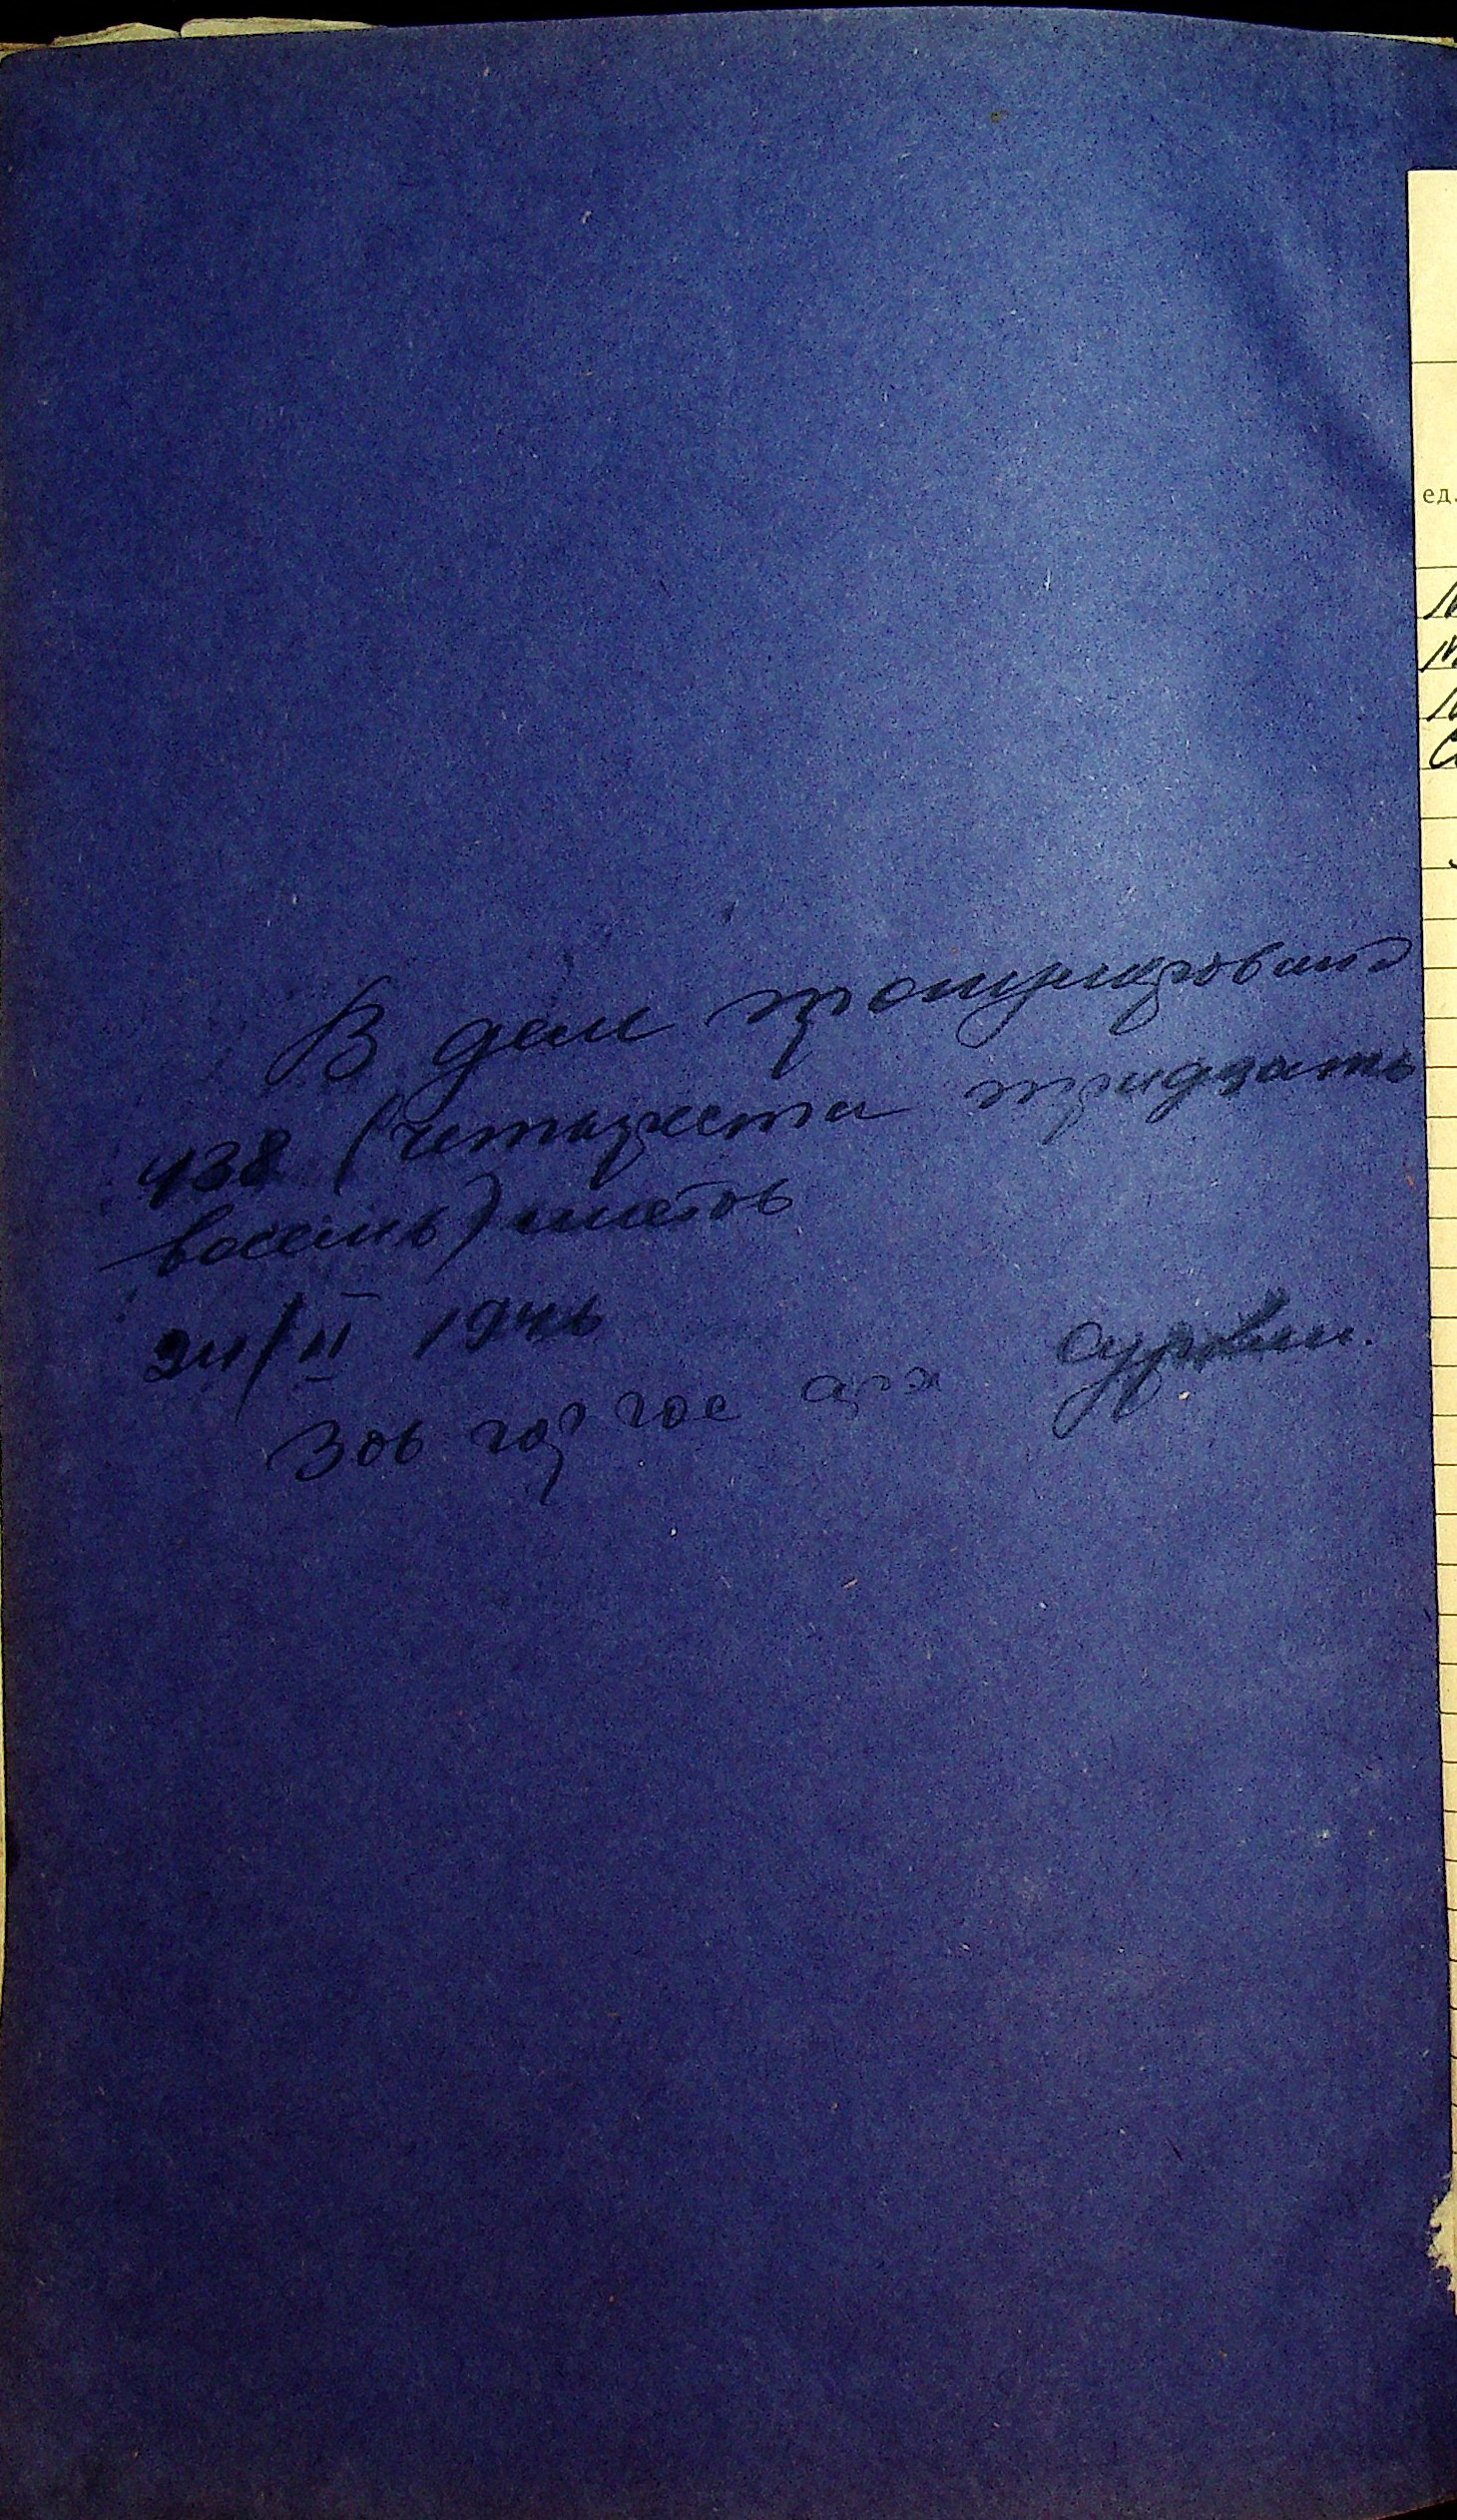 В деле пронумеровано
438 (четыреста тридцать
восемь) листов
24/II 1946
Зав гор гос арх
ед.